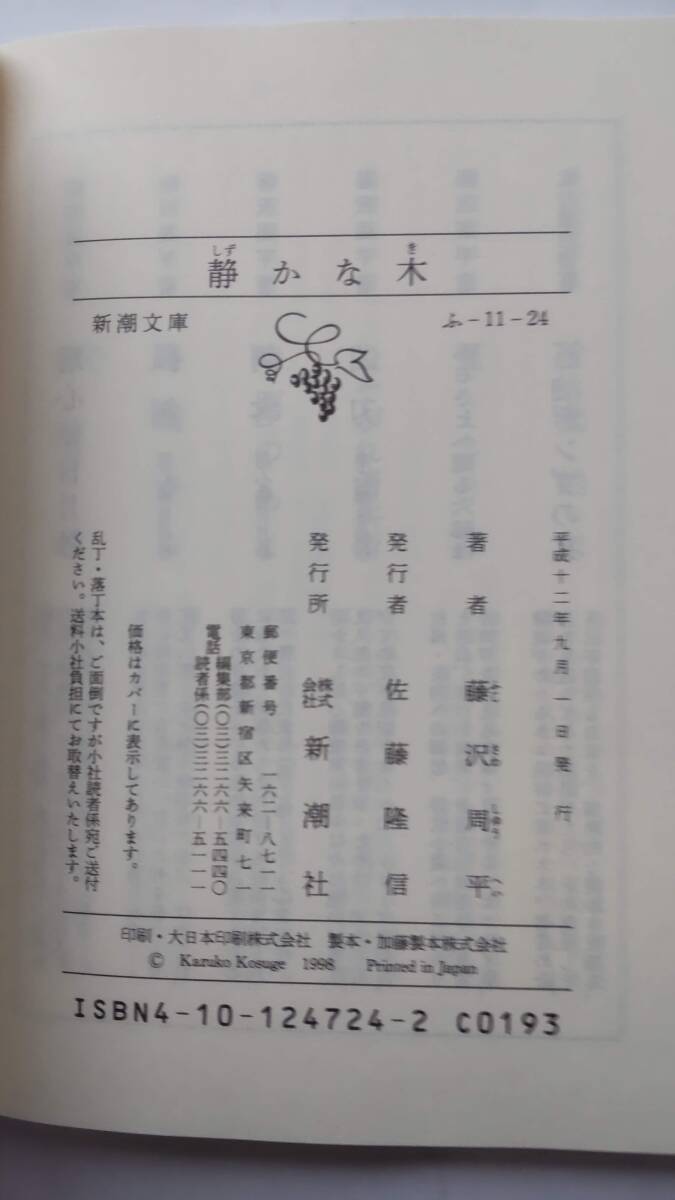 静かな木
しず
き
新潮文庫
ふ-11-24
平成十二年九月一日発行
著者 藤沢周平
発行者 佐藤隆信
発行所 株式会社 新潮社
郵便番号 一六二-八七一一
東京都新宿区矢来町七一
電話 編集部(〇三)三二六六-五四四〇
読者係(〇三)三二六六-五一一一
価格はカバーに表示してあります。
乱丁・落丁本は、ご面倒ですが小社読者係宛ご送付
ください。送料小社負担にてお取替えいたします。
印刷・大日本印刷株式会社 製本・加藤製本株式会社
© Kazuko Kosuge 1998 Printed in Japan
ISBN4-10-124724-2 C0193